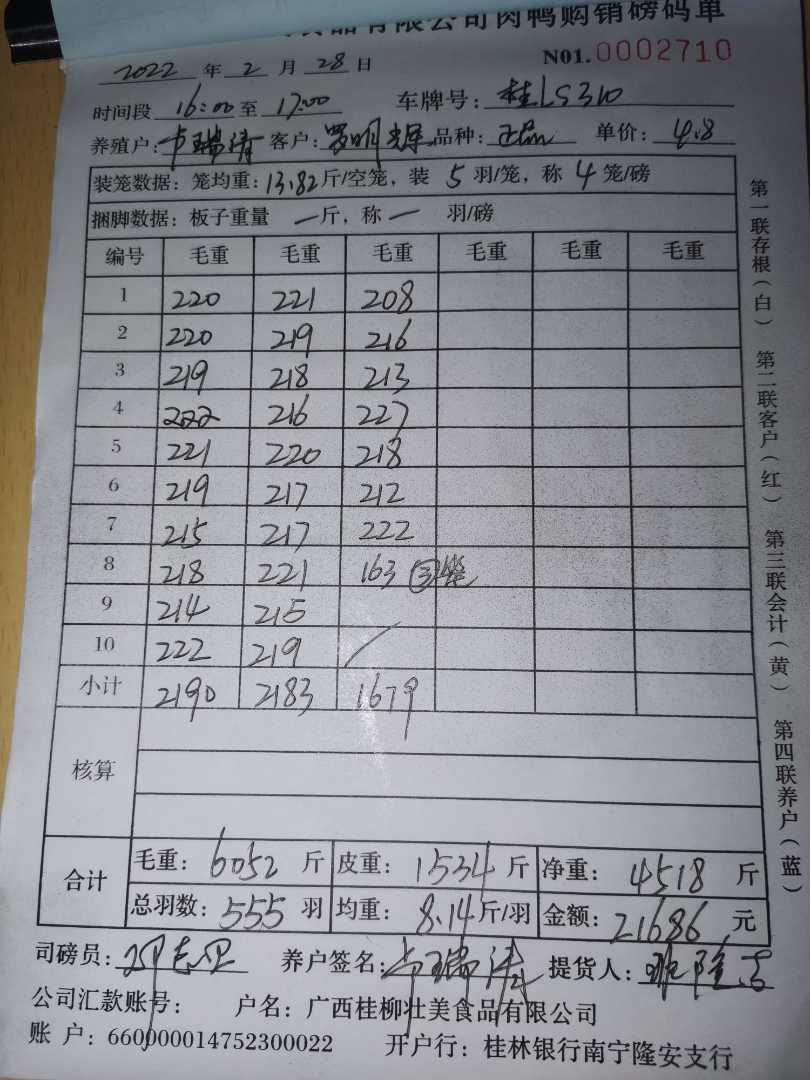 食品有限公司肉鸭购销磅码单
2022 年 2 月 28 日 N01.0002710
时间段 16:00 至 17:00 车牌号: 桂LS310
养殖户: 卢瑞清 客户: 罗明辉 品种: 正品 单价: 4.8
装笼数据: 笼均重: 13.82 斤/空笼, 装 5 羽/笼, 称 4 笼/磅
捆脚数据: 板子重量 一 斤, 称 一 羽/磅
编号 毛重 毛重 毛重 毛重 毛重 毛重
1 220 221 208
2 220 219 216
3 219 218 213
4 222 216 227
5 221 220 218
6 219 217 212
7 215 217 222
8 218 221 163 ③笼
9 214 215
10 222 219 /
小计 2190 2183 1679
核算
合计 毛重: 6052 斤 皮重: 1534 斤 净重: 4518 斤
总羽数: 555 羽 均重: 8.14 斤/羽 金额: 21686 元
司磅员: 养户签名: 卢瑞清 提货人:
公司汇款账号: 户名: 广西桂柳壮美食品有限公司
账 户: 660000014752300022 开户行: 桂林银行南宁隆安支行
第一联存根(白) 第二联客户(红) 第三联会计(黄) 第四联养户(蓝)